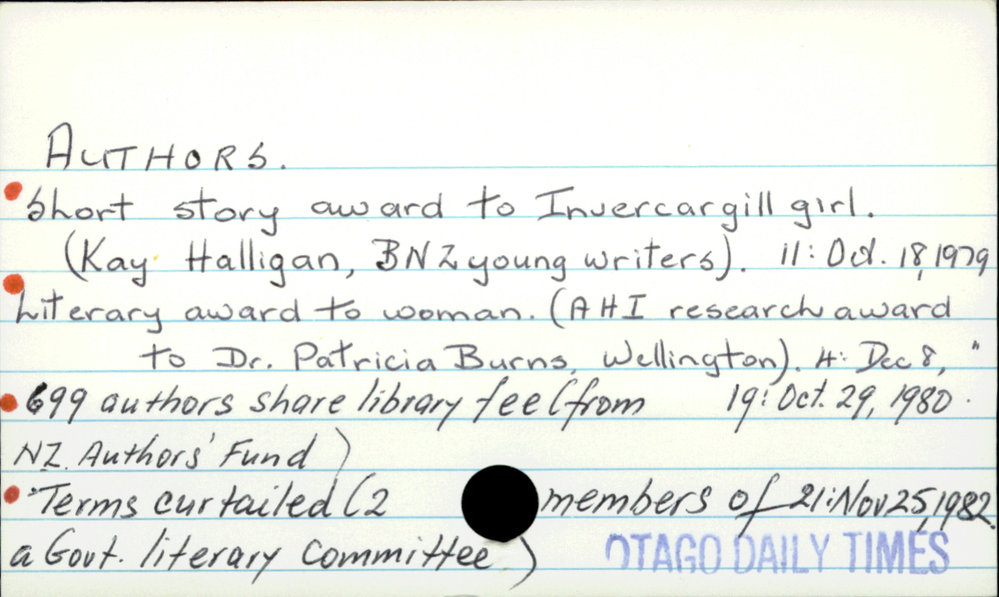 AUTHORS.
Short story award to Invercargill girl.
(Kay Halligan, BNZ young writers). 11: Oct. 18, 1979
Literary award to woman. (AHI research award
to Dr. Patricia Burns, Wellington). 4: Dec 8, "
699 authors share library fee (from 19: Oct. 29, 1980.
NZ. Authors' Fund)
"Terms curtailed (2 members of 21: Nov 25, 1982.
a Govt. literary Committee)
OTAGO DAILY TIMES